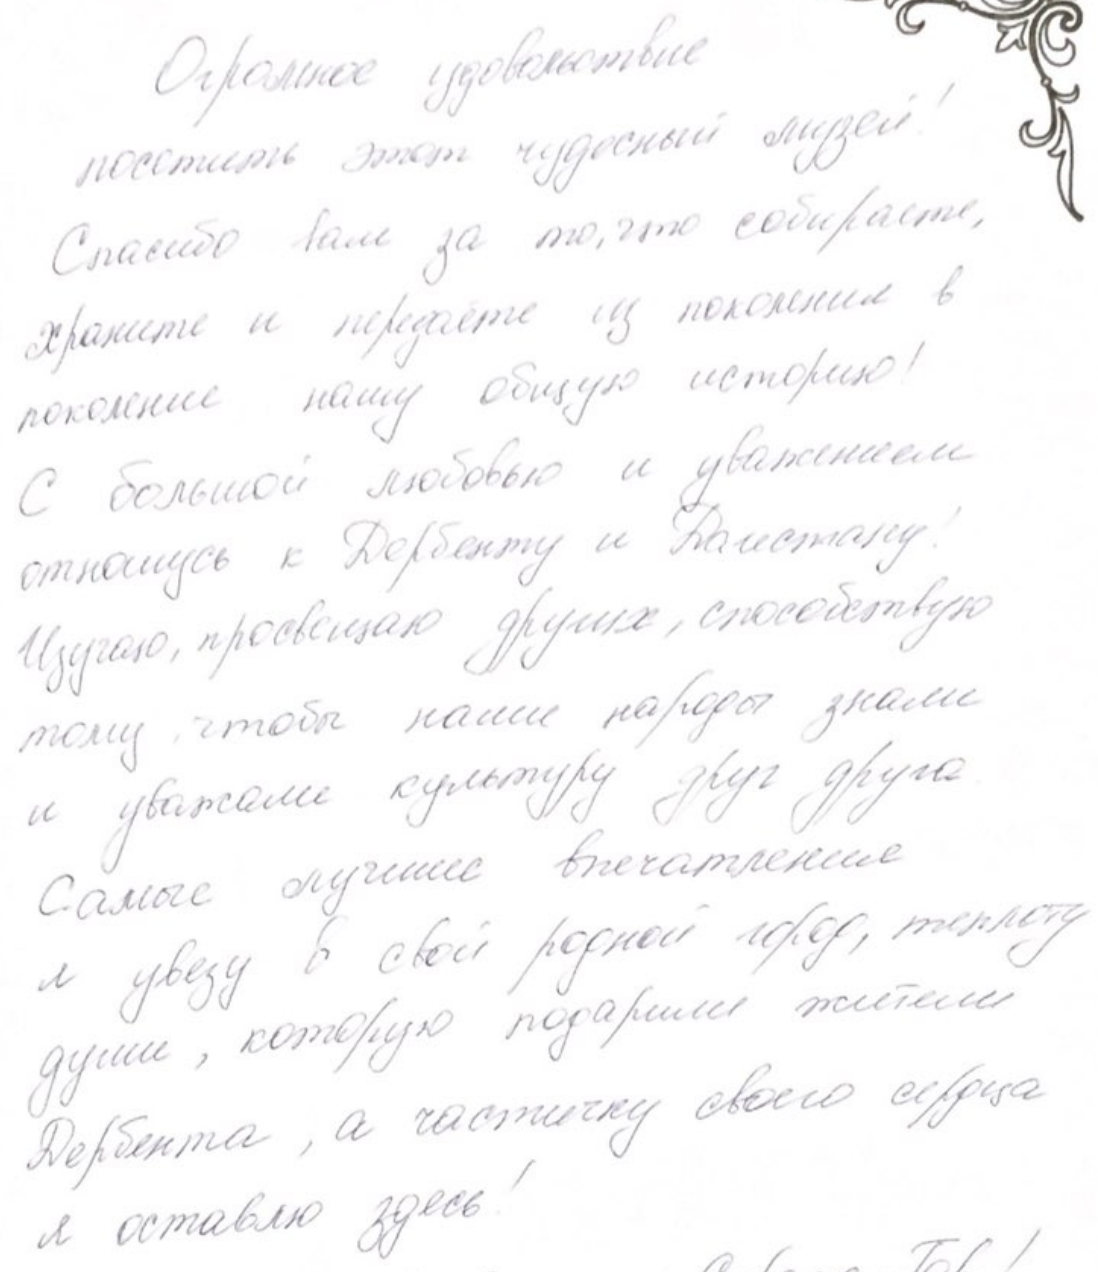 Огромное удовольствие
посетить этот чудесный музей!
Спасибо вам за то, что собираете,
храните и передаёте из поколения в
поколение нашу общую историю!
С большой любовью и уважением
отношусь к Дербенту и Дагестану!
Изучаю, просвещаю других, способствую
тому, чтобы наши народы знали
и уважали культуру друг друга.
Самые лучшие впечатления
я увезу в свой родной город, теплоту
души, которую подарили жители
Дербента, а частичку своего сердца
я оставлю здесь!